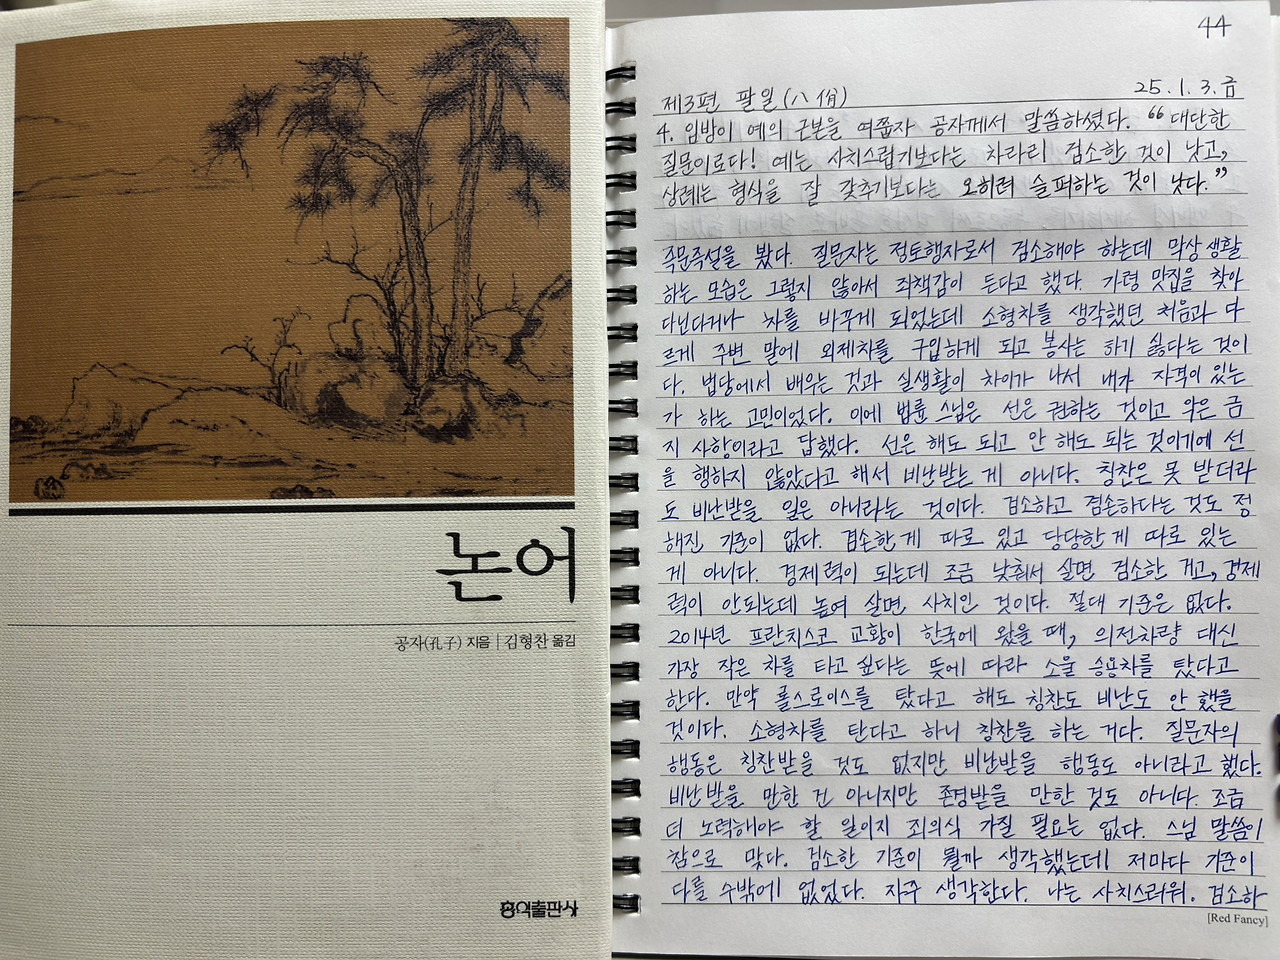 논어
공자(孔子) 지음 | 김형찬 옮김
홍익출판사
44
제3편 팔일(八佾) 25.1.3.금
4. 임방이 예의 근본을 여쭙자 공자께서 말씀하셨다. “대단한
질문이로다! 예는 사치스럽기보다는 차라리 검소한 것이 낫고,
상례는 형식을 잘 갖추기보다는 오히려 슬퍼하는 것이 낫다.”
즉문즉설을 봤다. 질문자는 정토행자로서 검소해야 하는데 막상 생활
하는 모습은 그렇지 않아서 죄책감이 든다고 했다. 가령 맛집을 찾아
다닌다거나 차를 바꾸게 되었는데 소형차를 생각했던 처음과 다
르게 주변 말에 외제차를 구입하게 되고 봉사는 하기 싫다는 것이
다. 법당에서 배우는 것과 실생활이 차이가 나서 내가 자격이 있는
가 하는 고민이었다. 이에 법륜 스님은 선은 권하는 것이고 악은 금
지 사항이라고 답했다. 선은 해도 되고 안 해도 되는 것이기에 선
을 행하지 않았다고 해서 비난받는 게 아니다. 칭찬은 못 받더라
도 비난받을 일은 아니라는 것이다. 검소하고 겸손하다는 것도 정
해진 기준이 없다. 겸손한 게 따로 있고 당당한 게 따로 있는
게 아니다. 경제력이 되는데 조금 낮춰서 살면 검소한 게고, 경제
력이 안되는데 높여 살면 사치인 것이다. 절대 기준은 없다.
2014년 프란치스코 교황이 한국에 왔을 때, 의전차량 대신
가장 작은 차를 타고 싶다는 뜻에 따라 소울 승용차를 탔다고
한다. 만약 롤스로이스를 탔다고 해도 칭찬도 비난도 안 했을
것이다. 소형차를 탄다고 하니 칭찬을 하는 거다. 질문자의
행동은 칭찬받을 것도 없지만 비난받을 행동도 아니라고 했다.
비난받을 만한 건 아니지만 존경받을 만한 것도 아니다. 조금
더 노력해야 할 일이지 죄의식 가질 필요는 없다. 스님 말씀이
참으로 맞다. 검소한 기준이 뭘까 생각했는데 저마다 기준이
다를 수밖에 없었다. 자주 생각한다. 나는 사치스러워. 검소하
[Red Fancy]